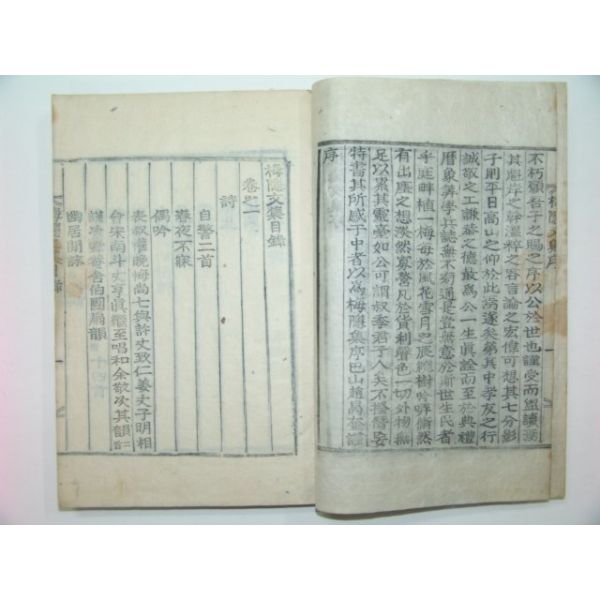 不朽顧吾子之賜之序以公於世也謹受而盥讀焉
其魁岸之幹溫粹之容言論之宏偉可想其七分影
子則平日高山之仰於此焉遂矣第其中孝友之行
誠敬之工謙恭之德敢爲公一生眞詮而至於典禮
曆象算學其誌無不旁通是豈無意於斯世生民者
乎庭畔植一梅每於風花雪月之辰繞樹吟哢翛然
有出塵之想淡然寡營凡於貨利聲色一切外物無
足以累其靈臺如公可謂叔季君子人矣不揆僭妄
特書其所感于中者以爲梅隱集序巴山趙昺奎謹
序
梅隱文集目錄
卷之一
詩
自警二首
春夜不寐
偶吟
表叔權晩悔尙七與許丈致仁姜丈子明相
會宋南斗丈亨眞繼至唱和余敬次其韻
幽居閒詠